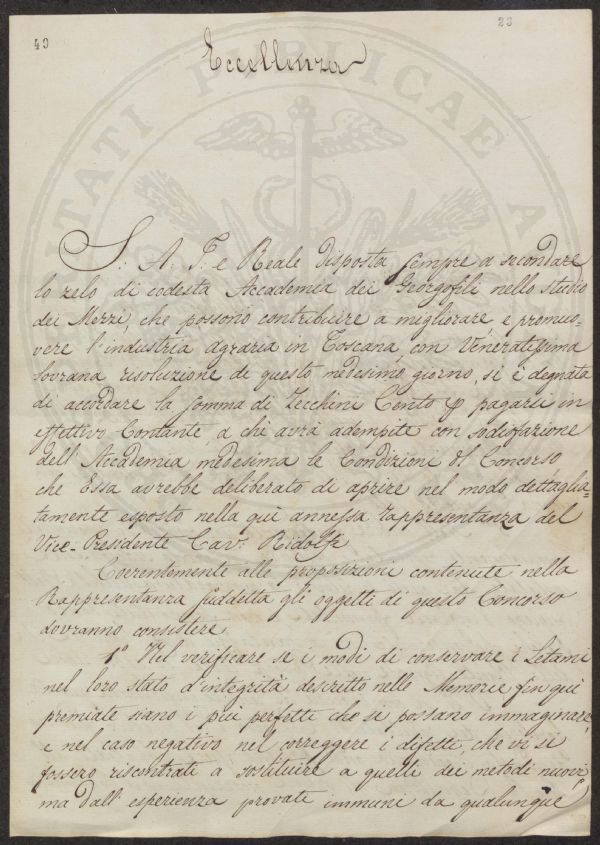 49
23
Eccellenza
S: A: I: e Reale disposta sempre a secondare
lo zelo di codesta Accademia dei Georgofili nello studio
dei Mezzi, che possono contribuire a migliorare, e promuo=
vere l'industria agraria in Toscana, con Veneratissima
Sovrana risoluzione di questo medesimo giorno, si è degnata
di accordare la somma di Zecchini Cento p pagarsi in
effettivo Contante a chi avrà adempite con sodisfazione
dell'Accademia medesima le Condizioni del Concorso
che Essa avrebbe deliberato di aprire nel modo dettaglia=
tamente esposto nella quì annessa rappresentanza del
Vice-Presidente Cav: Ridolfi
Coerentemente alle proposizioni contenute nella
Rappresentanza suddetta gli oggetti di questo Concorso
dovranno consistere
1.° Nel verificare se i modi di conservare i Letami
nel loro stato d'integrità descritto nelle Memorie fin quì
premiate siano i più perfetti che si possano immaginare,
e nel caso negativo nel correggere i difetti, che vi si
fossero riscontrati a sostituire a quelli dei metodi nuovi,
ma dall'esperienza provati immuni da qualunque
ITATI PUBLICAE A